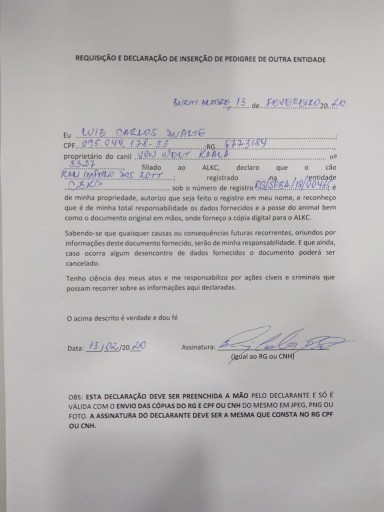 REQUISIÇÃO E DECLARAÇÃO DE INSERÇÃO DE PEDIGREE DE OUTRA ENTIDADE
13 de FEVEREIRO 20 20
Eu LUIZ CARLOS DUARTE
CPF 095.044.178-33 RG 6723184
proprietário do canil VON WENT nº
3327, filiado ao ALKC, declaro que o cão
DOS ROTT; registrado na entidade
sob o número de registro é
de minha propriedade, autorizo que seja feito o registro em meu nome, e reconheço
que é de minha total responsabilidade os dados fornecidos e a posse do animal bem
como o documento original em mãos, onde forneço a cópia digital para o ALKC.
Sabendo-se que quaisquer causas ou consequências futuras recorrentes, oriundos por
informações deste documento fornecido, serão de minha responsabilidade. E que ainda,
caso ocorra algum desencontro de dados fornecidos o documento poderá ser
cancelado.
Tenho ciência dos meus atos e me responsabilizo por ações civeis e criminais que
possam recorrer sobre as informações aqui declaradas.
O acima descrito é verdade e dou fé
Data: 13/02/20 20 Assinatura:
(Igual ao RG ou CNH)
OBS: ESTA DECLARAÇÃO DEVE SER PREENCHIDA A MÃO PELO DECLARANTE E SÓ É
VÁLIDA COM O ENVIO DAS CÓPIAS DO RG E CPF OU CNH DO MESMO EM JPEG, PNG OU
FOTO. A ASSINATURA DO DECLARANTE DEVE SER A MESMA QUE CONSTA NO RG CPF
OU CNH.